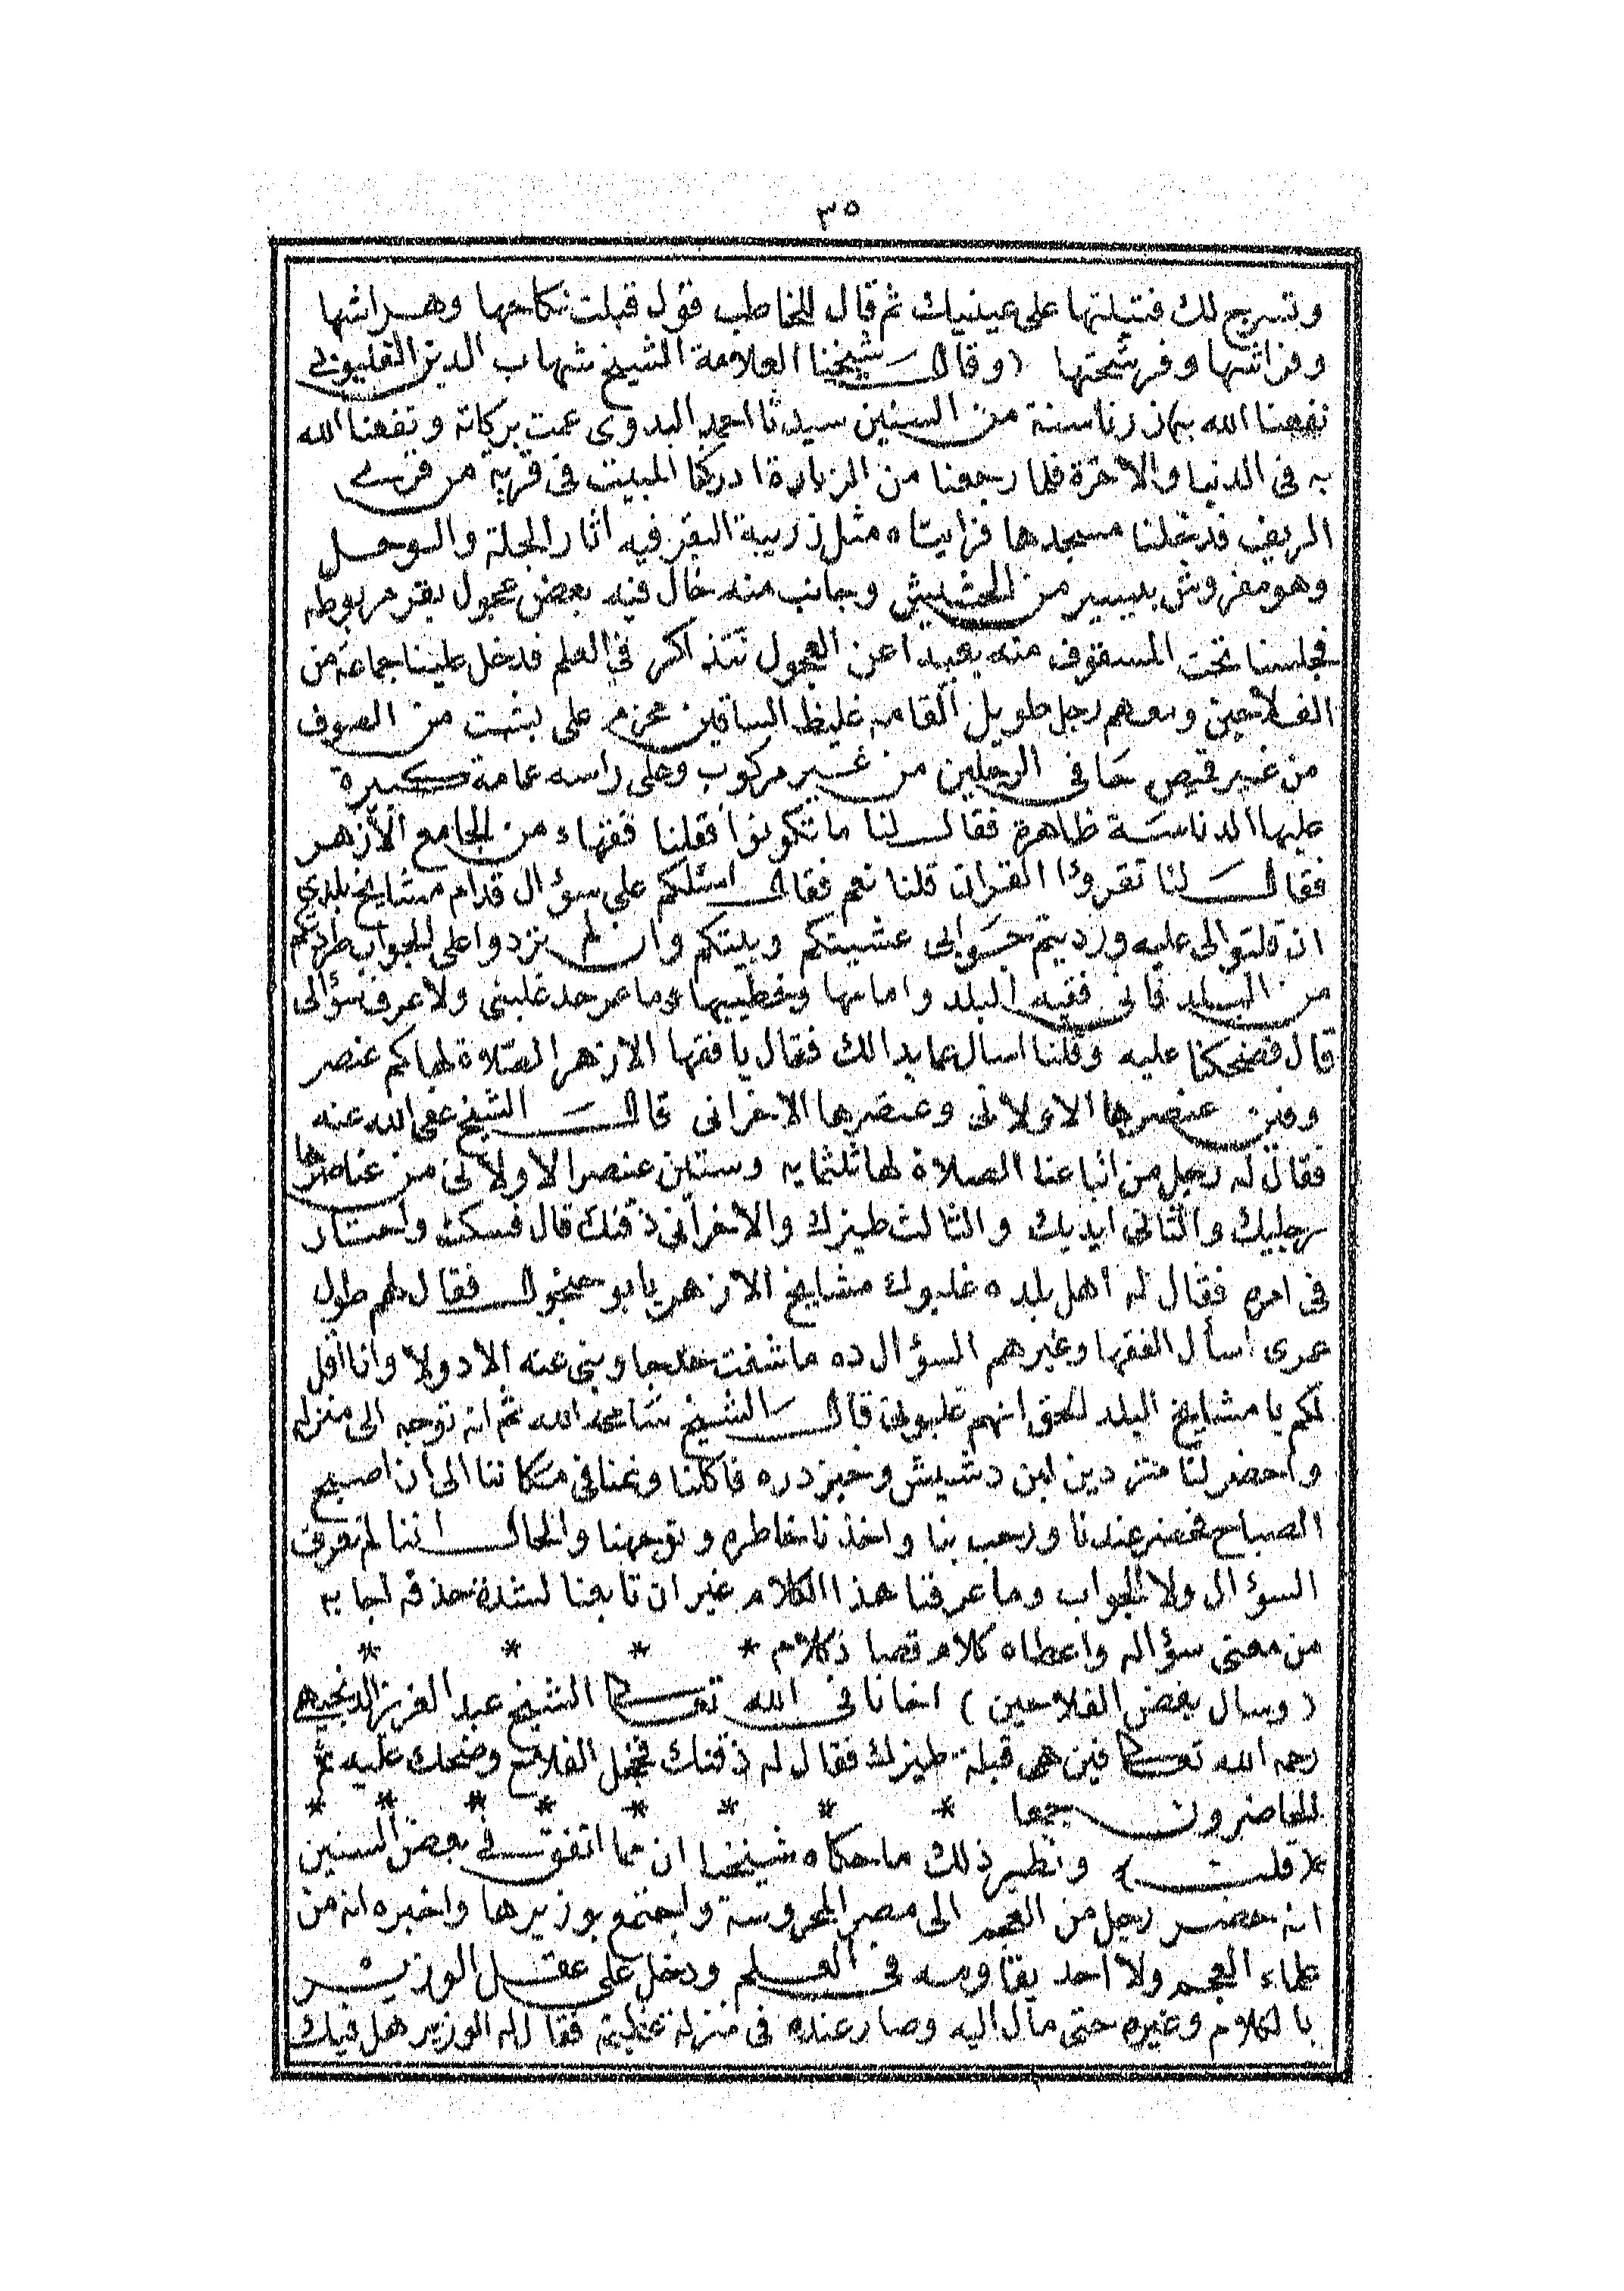 ٣٥
وتسرج لك فتيلتها على عينيك ثم قال للخاطب قول قبلت نكاحها وهراشها
وفراشها وفرشحتها (وقال شيخنا العلامة الشيخ شهاب الدين القليوبى
نفعنا الله به) زرنا سنة من السنين سيدنا احمد البدوى عمت بركاته ونفعنا الله
به فى الدنيا والاخرة فلما رجعنا من الزيارة ادركنا المبيت فى قرية من قرى
الريف فدخلنا مسجدها فرايناه مثل زريبة البقر فيه اثار الجلة والوحل
وهو مفروش بيسير من الحشيش وجانب منه خال فيه بعض عجول بقر مربوطه
فجلسنا تحت المسقوف منه بعيدا عن العجول نتذاكر في العلم فدخل علينا جماعة من
الفلاحين ومعهم رجل طويل القامه غليظ الساقين محزم على بشت من الصوف
من غير قميص حافى الرجلين من غير مركوب وعلى راسه عمامة كبيرة
عليها الدناسة ظاهرة فقال لنا ما تكونوا فقلنا فقهاء من الجامع الأزهر
فقال لنا تقروا القران قلنا نعم فقال اسئلكم على سؤال قدام مشايخ بلدي
ان قلتوا لى عليه ورديتم جوابى عشيتكم وبيتكم وان لم تردوا على الجواب طردتكم
من البلد فأنى فقيه البلد وامامها وخطيبها وما عمر حد غلبنى ولا عرف سؤالى
قال فضحكنا عليه وقلنا اسال عما بدالك فقال يا فقها الازهر الصلاة لها كم عنصر
وفين عنصرها الاولانى وعنصرها الاخرانى قال الشيخ عفى الله عنه
فقال له رجل من اتباعنا الصلاة لها ثلثمايه وستين عنصرا الاولانى من عناصرها
رجليك والثانى ايديك والثالث طيزك والاخرانى ذقنك قال فسكت واحتار
فى امره فقال له أهل بلده غلبوك مشايخ الازهر يا بو عنجول فقال لهم طول
عمرى اسأل الفقها وغيرهم السؤال ده ما شفت حد جاوبنى عنه الا دولا وانا اقل
لكم يا مشايخ البلد الحق انهم غلبونى قال الشيخ سامحه الله ثم انه توجه الى منزله
وأحضر لنا متردين لبن دشيش وخبز دره فاكلنا ونمنا فى مكاننا الى أن اصبح
الصباح فحضر عندنا ورحب بنا واخذنا خاطره وتوجهنا والحال اننا لم نعرف
السؤال ولا الجواب وما عرفنا هذا الكلام غير ان تابعنا لشدة حذقه اجابه
من معنى سؤاله واعطاه كلام قصاد كلام * * * *
(وسال بعض الفلاحين) اخانا فى الله تعالى الشيخ عبد العزيز الدنجيهى
رحمه الله تعالى فين هى قبلة طيزك فقال له ذقنك فخجل الفلاح وضحك عليه ثم
الحاضرون جميعا * * * * * * * *
(قلت) ونظير ذلك ما حكاه شيخنا ان مما اتفق في بعض السنين
انه حضر رجل من العجم الى مصر المحروسة واجتمع بوزيرها واخبره انه من
علماء العجم ولا احد يقاومه فى العلم ودخل على عقل الوزير
بالكلام وغيره حتى مال اليه وصار عنده فى منزلة عظيمة فقال له الوزير هل فيك